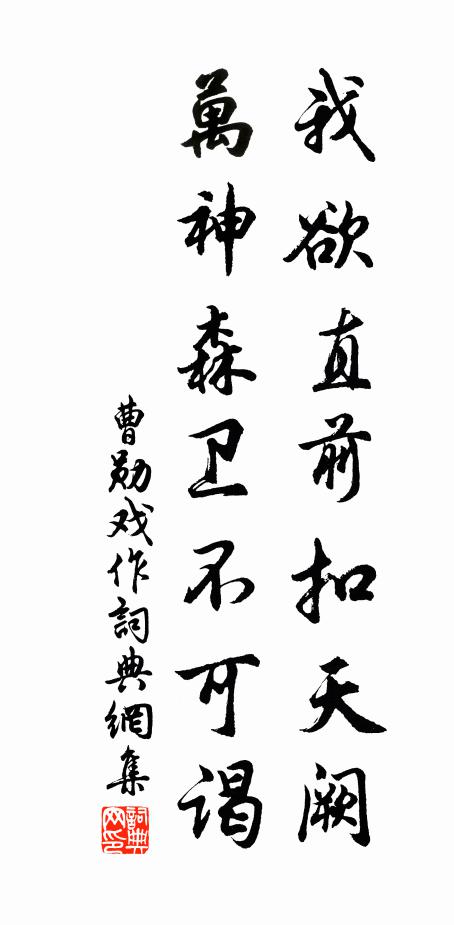 我欲直前扣天阙
萬神森卫不可谒
曹勋戏作詞典網集
詞典网印